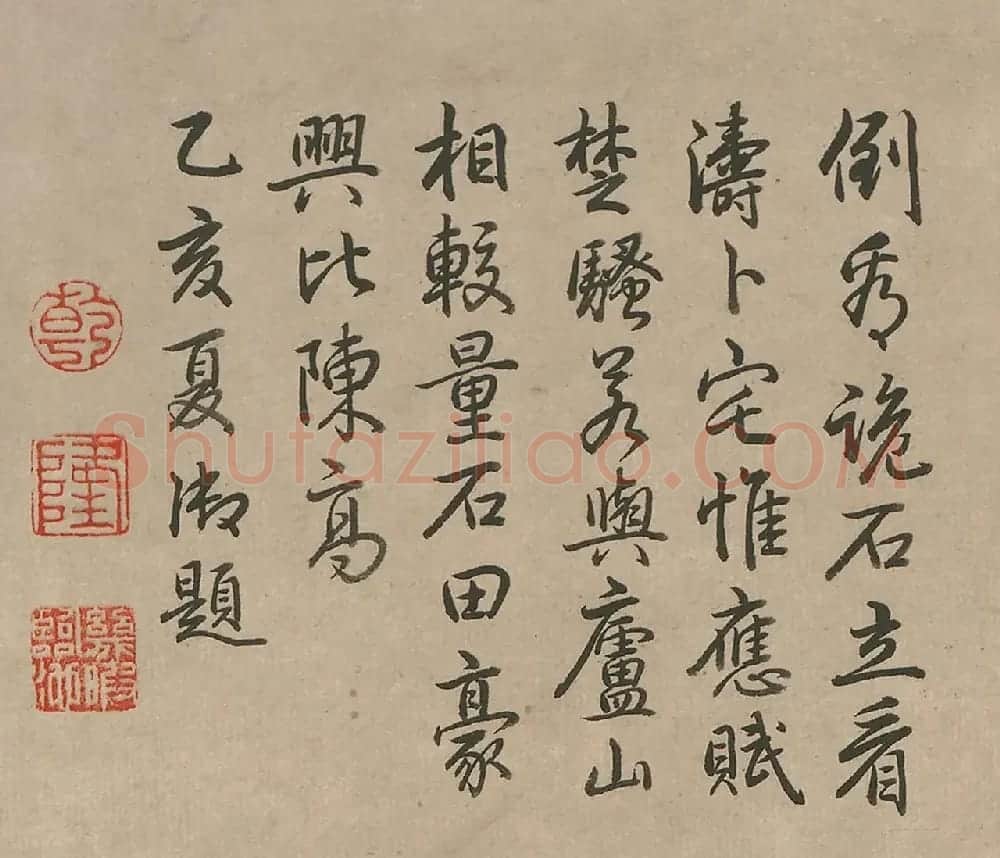 倒詭石立看
濤卜宅惟應賦
楚騷若與廬山
相較量石田豪
興比陳高
乙亥夏御題
乾
隆
幾暇臨池
Shufaziliao.COM